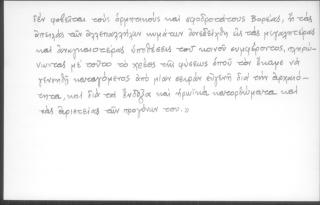 δὲν φοβεῖται τοὺς ὁρμητικοὺς καὶ σφοδροτάτους Βορέας, ἢ τὰς
ἀπειλὰς τῶν ἀλλεπαλλήλων κυμάτων ἀνεδείχθη ὡς τὰς μεγαλητέρας
καὶ ἀναγκαιοτέρας ὑποθέσεις τοῦ κοινοῦ συμφέροντος, πληρώ-
νωντας μὲ τοῦτο τὸ χρέος τῆς φύσεως ὁποῦ τὸν ἔκαμε νὰ
γεννηθῇ καταγόμενος ἀπὸ μίαν σειρὰν εὐγενῆ διὰ τὴν ἀρχαιό-
τητα, καὶ διὰ τὰ ἔνδοξα καὶ ἡρωϊκὰ κατορθώματα καὶ
τὰς ἀριστείας τῶν προγόνων του.»